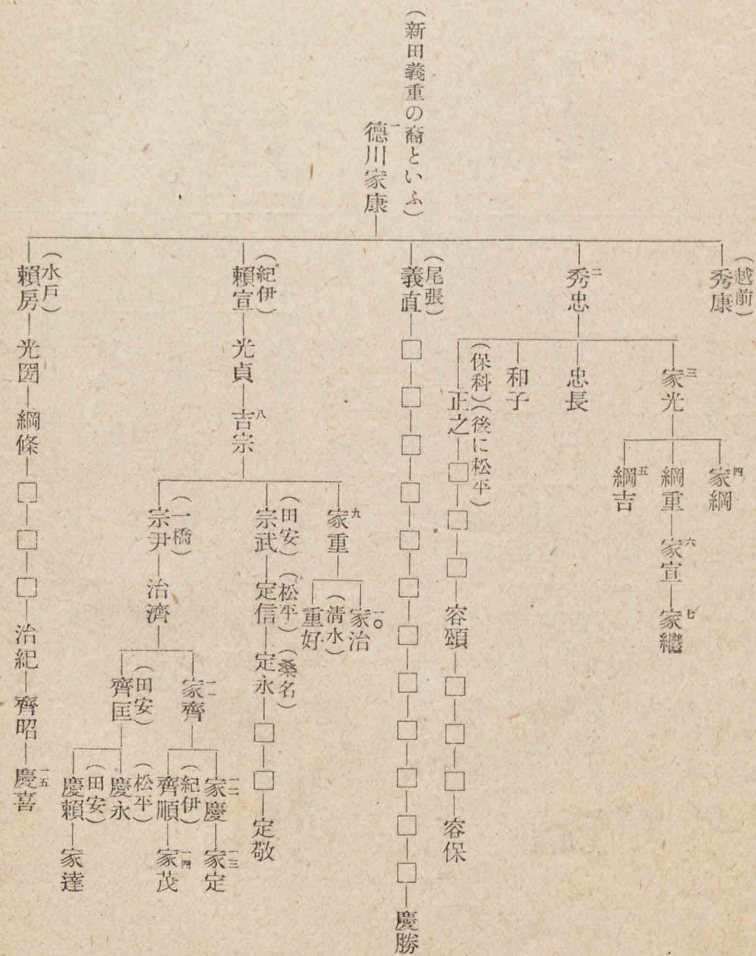 （新田義重の裔といふ）
一
德川家康
（越前）
秀康
二
秀忠
三
家光
四
家綱
綱重
六
家宣
七
家繼
五
綱吉
忠長
和子
（保科）（後に松平）
正之─□─□─□─容頌─□─□─□─容保
（尾張）
義直─□─□─□─□─□─□─□─□─□─□─□─□─慶勝
（紀伊）
賴宣─光貞─吉宗
八
九
家重
一〇
家治
（清水）
重好
（田安）（松平）（桑名）
宗武─定信─定永─□─□─定敬
（一橋）
宗尹─治濟
一一
家齊
一二
家慶
一三
家定
（紀伊）
齊順
一四
家茂
（田安）
齊匡
（松平）
慶永
（田安）
慶賴─家達
（水戶）
賴房─光圀─綱條─□─□─□─治紀─齊昭─慶喜
一五